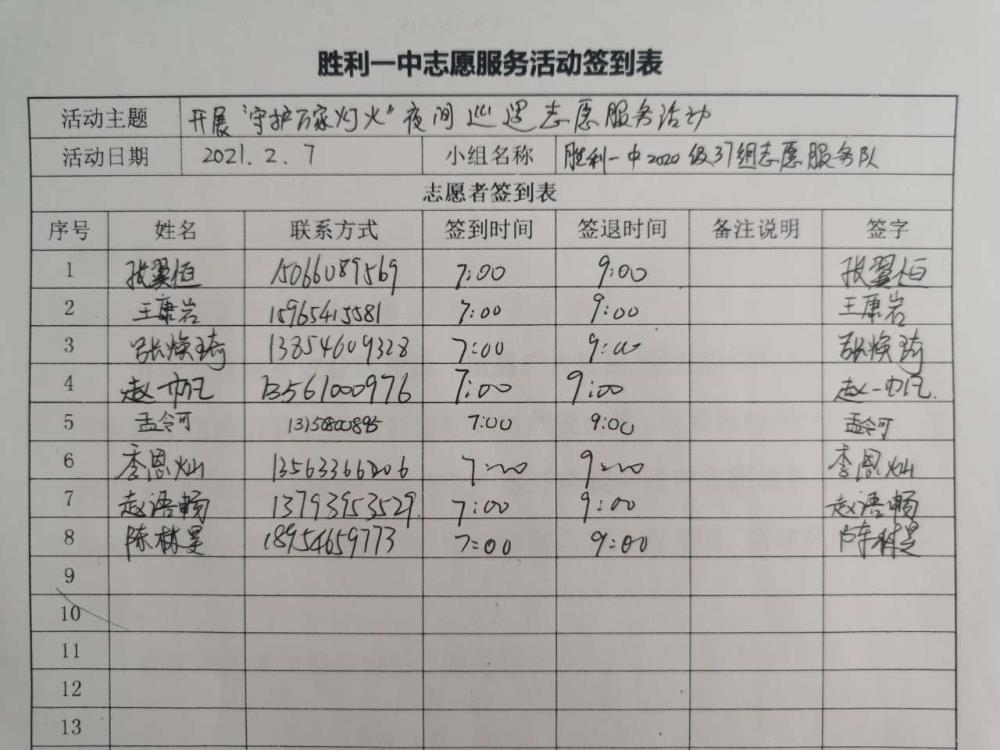 胜利一中志愿服务活动签到表
活动主题 开展"守护万家灯火"夜间巡逻志愿服务活动
活动日期 2021.2.7 小组名称 胜利一中2020级37组志愿服务队
志愿者签到表
序号 姓名 联系方式 签到时间 签退时间 备注说明 签字
1 张翼恒 15066089569 7:00 9:00 张翼恒
2 王康岩 15965415581 7:00 9:00 王康岩
3 张焕琦 13854609328 7:00 9:00 张焕琦
4 赵一帆 13561000976 7:00 9:00 赵一帆
5 孟令可 7:00 9:00 孟令可
6 李恩灿 7:00 9:00 李恩灿
7 赵语畅 13793953529 7:00 9:00 赵语畅
8 陈林昊 18954659773 7:00 9:00 陈林昊
9
10
11
12
13